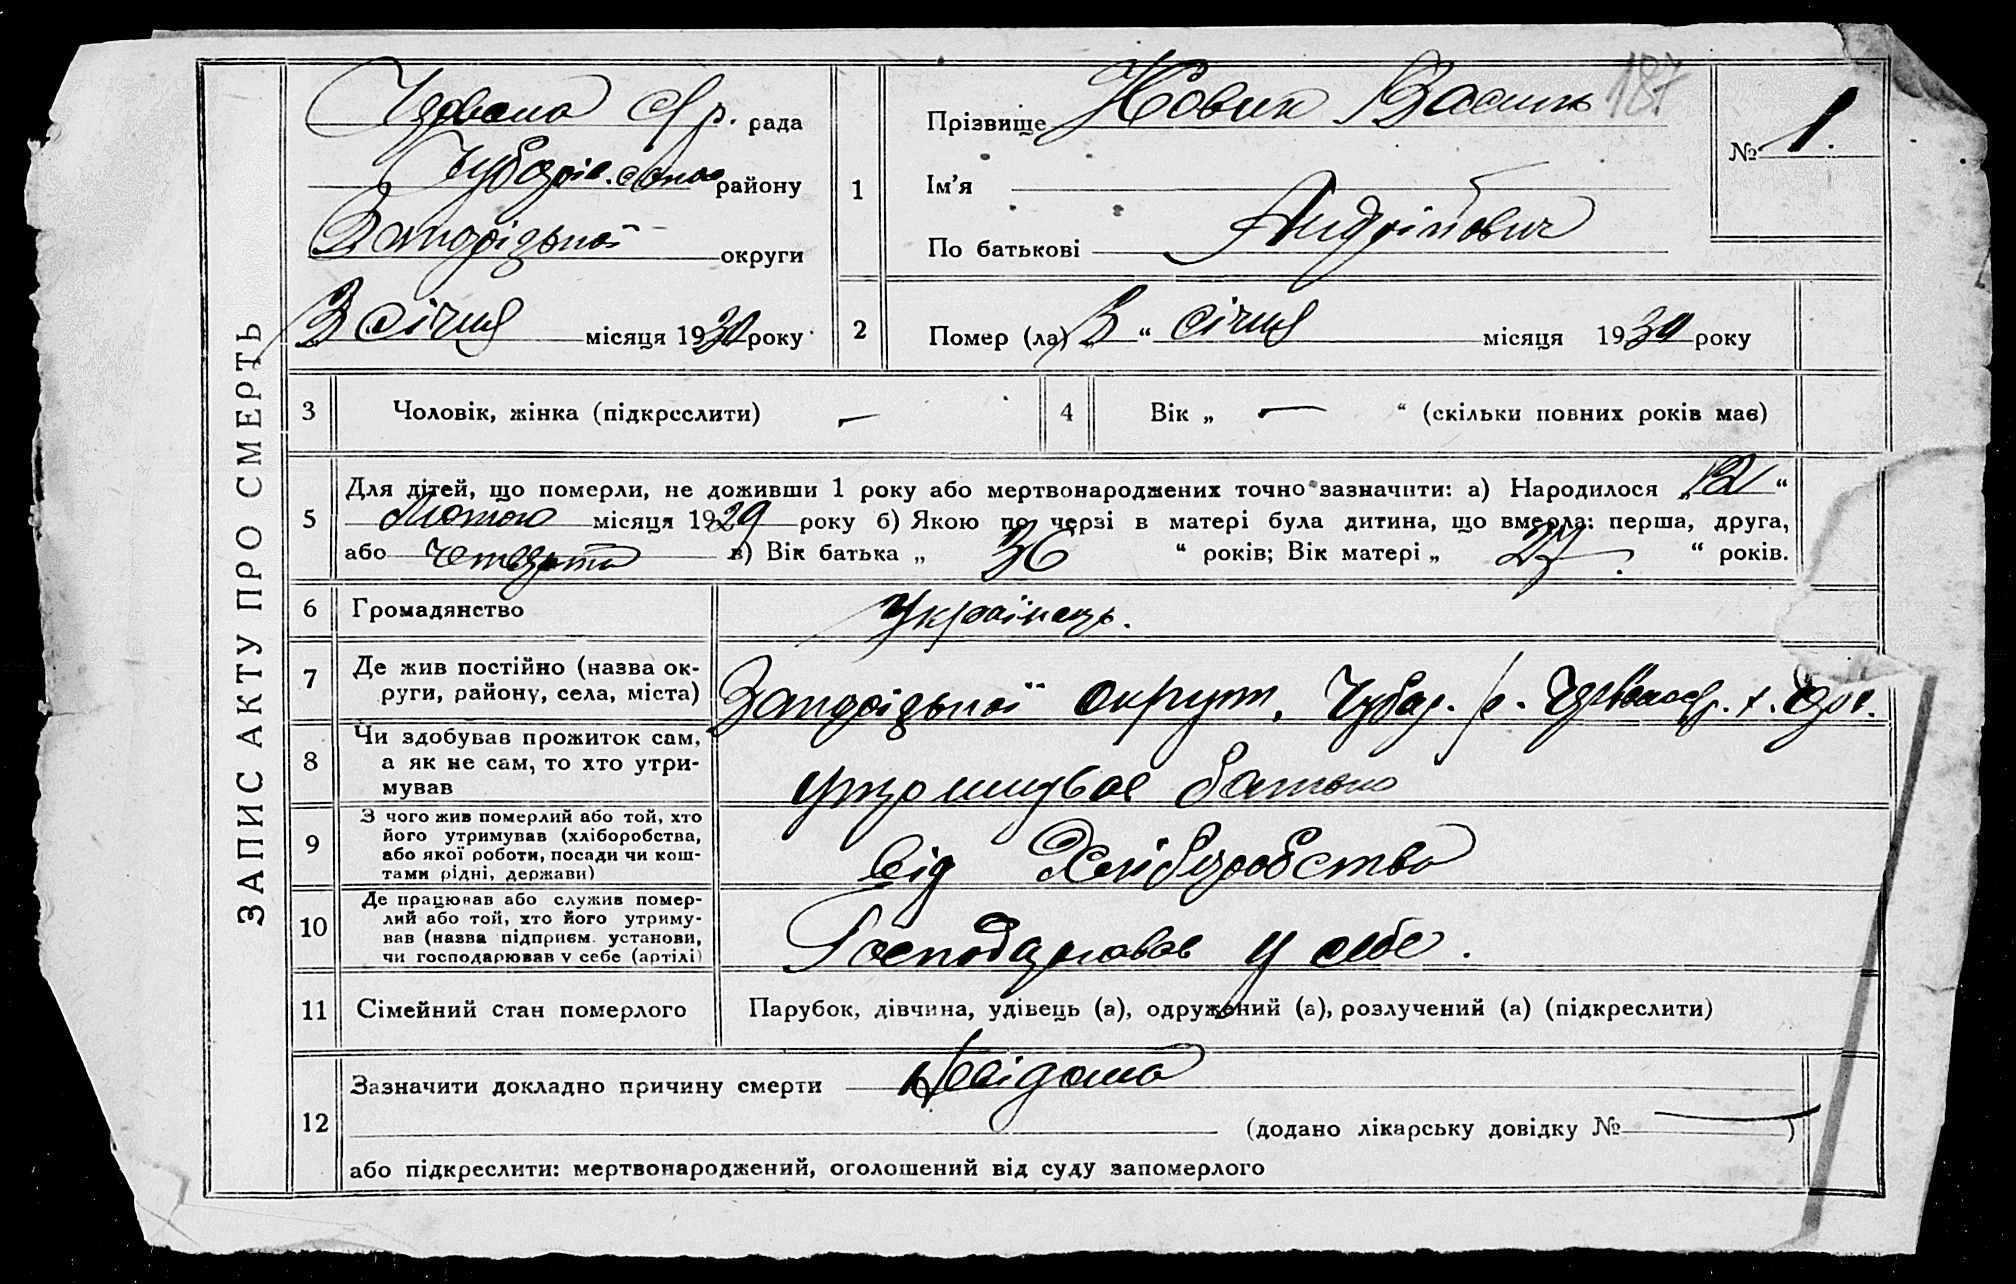 ЗАПИС АКТУ ПРО СМЕРТЬ
187
рада
району
Запорізької округи
3 січня місяця 1930 року
1
Прізвище Новик Василь
Ім'я
По батькові Андрійович
№ 1.
2
Помер (ла) „ 3 “ січня місяця 1930 року
3 Чоловік, жінка (підкреслити) —
4 Вік „ — “ (скільки повних років має)
5
Для дітей, що померли, не доживши 1 року або мертвонароджених точно зазначити: а) Народилося „ “
Лютого місяця 1929 року б) Якою по черзі в матері була дитина, що вмерла: перша, друга,
або четверта в) Вік батька „ 36 “ років; Вік матері „ 27. “ років.
6 Громадянство Українець.
7 Де жив постійно (назва ок-
руги, району, села, міста)
Запорізької округи, Чубар. р.
8 Чи здобував прожиток сам,
а як не сам, то хто утри-
мував
утримував батько
9 З чого жив померлий або той, хто
його утримував (хліборобства,
або якої роботи, посади чи кош-
тами рідні, держави)
від Хліборобства
10 Де працював або служив помер-
лий або той, хто його утриму-
вав (назва підприєм. установи,
чи господарював у себе (артілі)
Господарював у себе.
11 Сімейний стан померлого Парубок, дівчина, удівець (а), одружений (а), розлучений (а) (підкреслити)
12
Зазначити докладно причину смерти Невідома
(додано лікарську довідку № — )
або підкреслити: мертвонароджений, оголошений від суду запомерлого